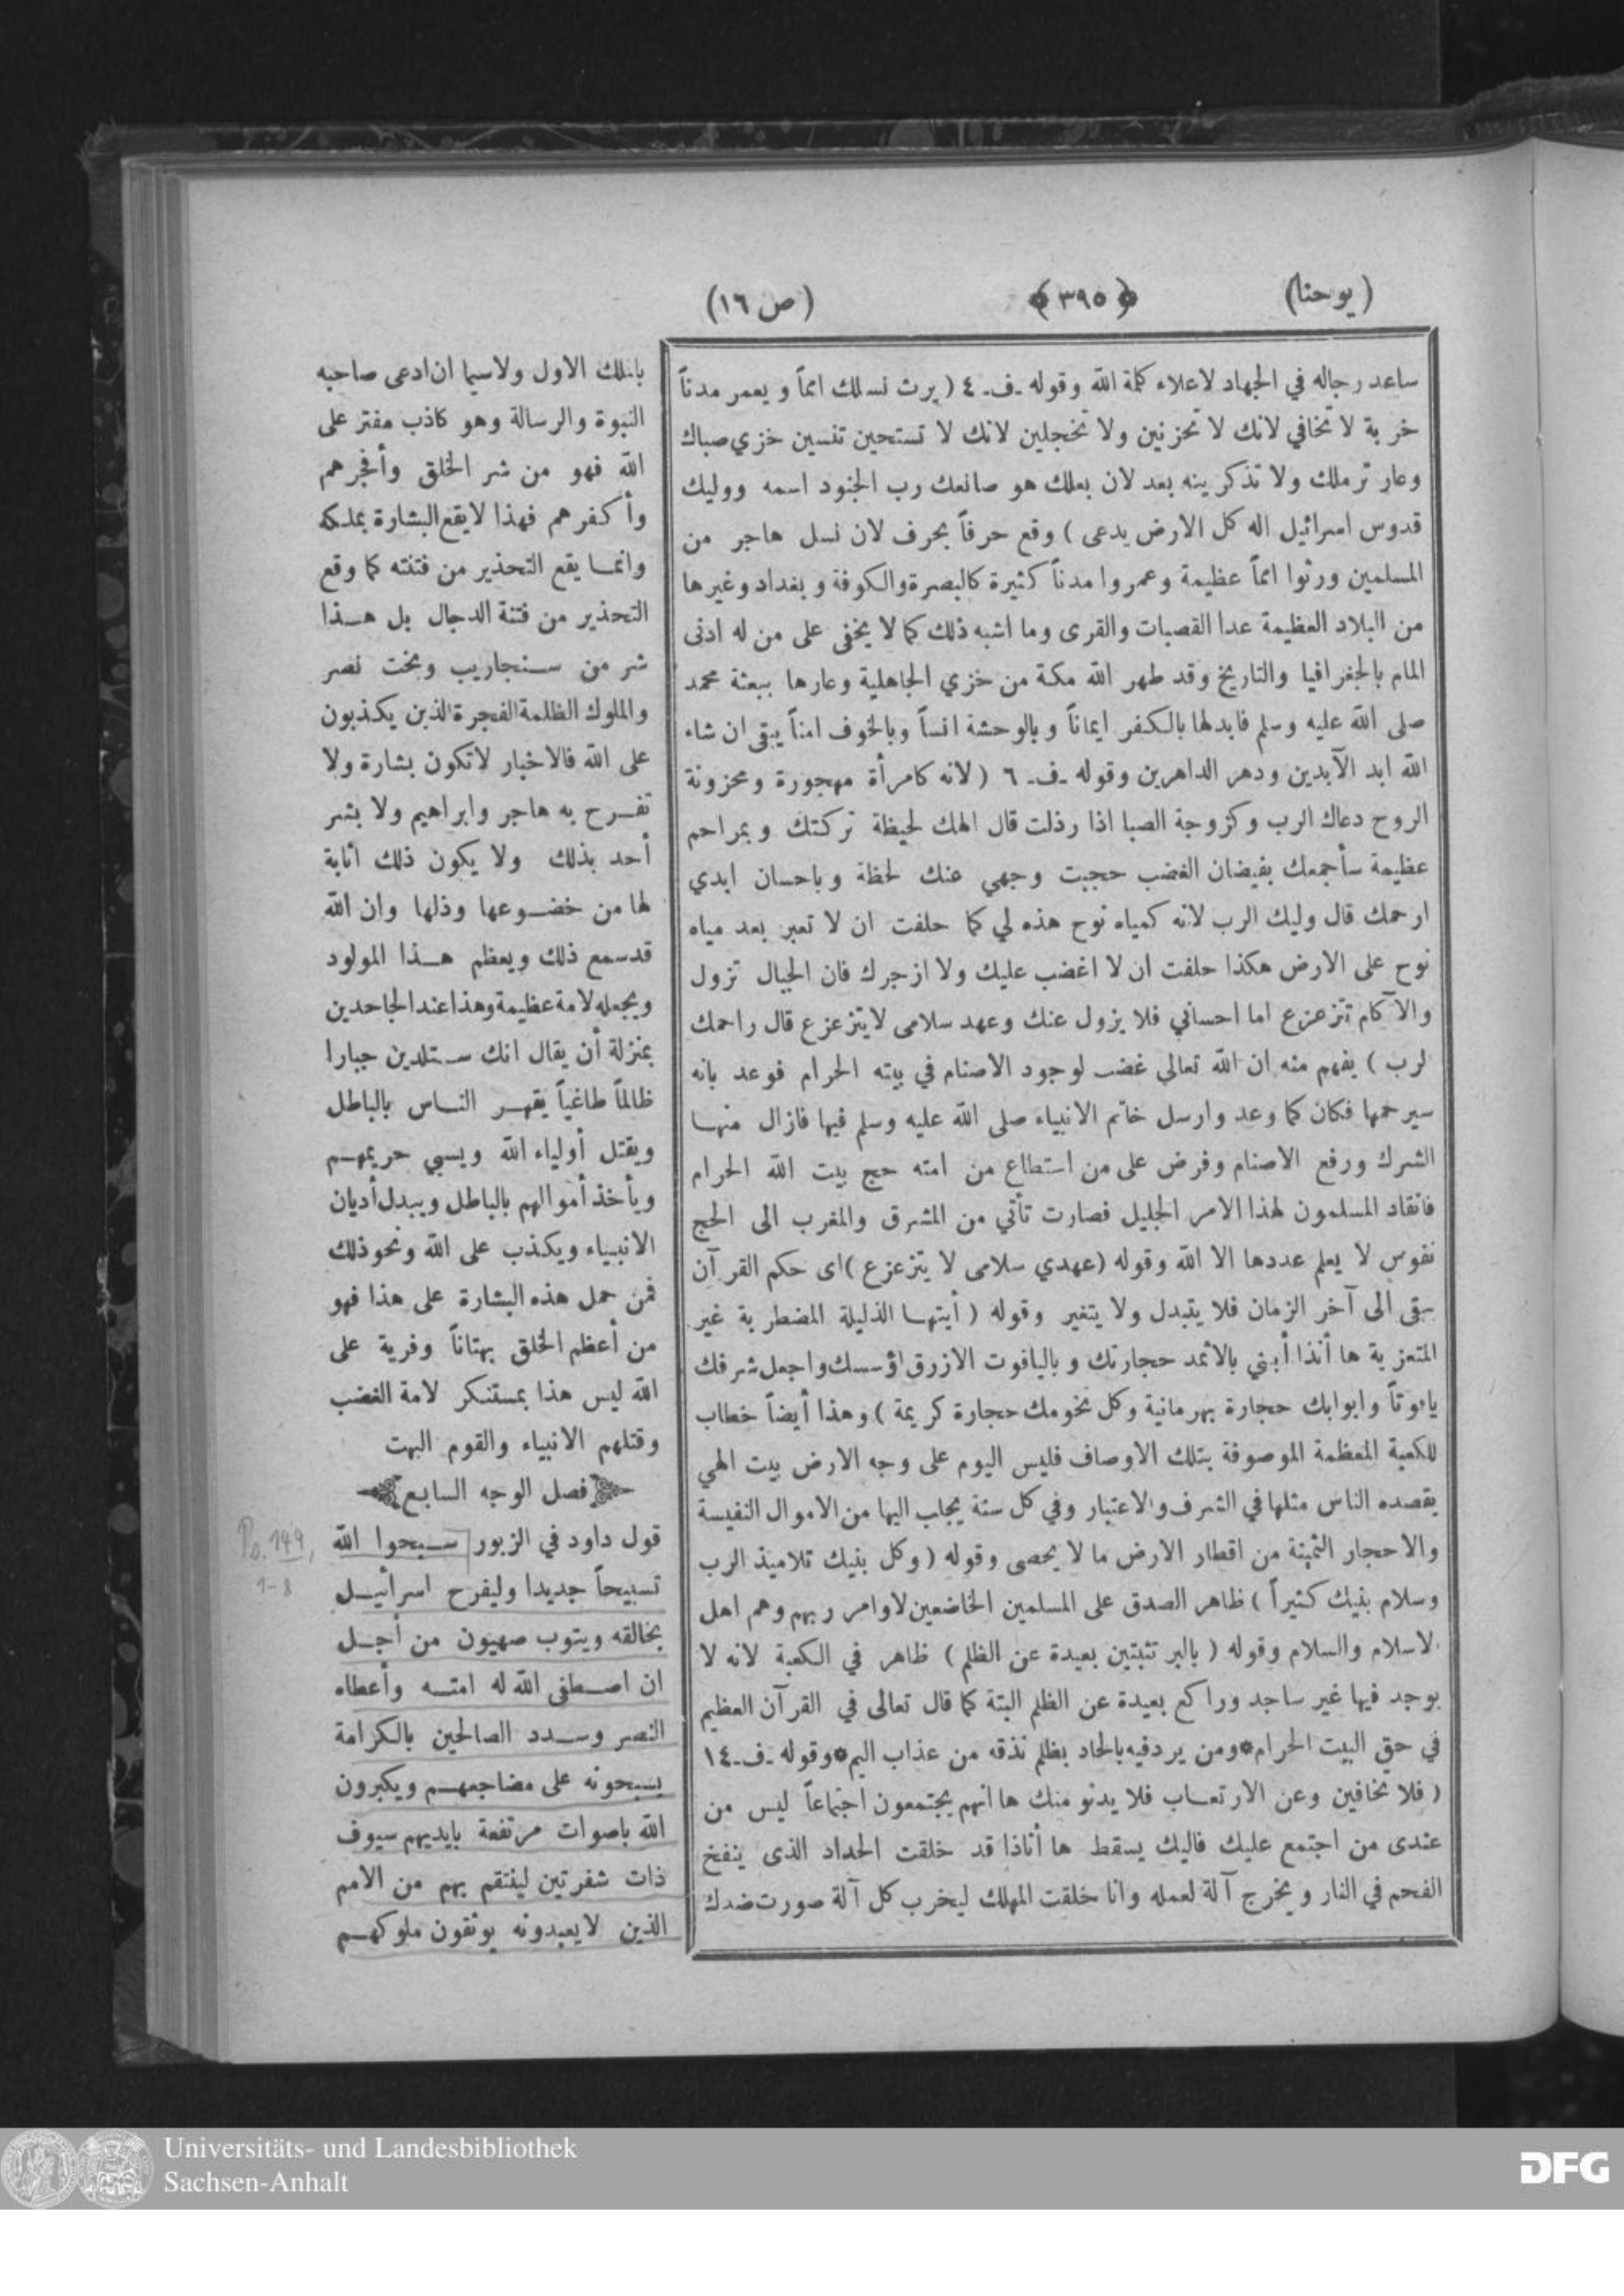 (يوحنا) ﴿٣٩٥﴾ (ص ١٦)
ساعد رجاله في الجهاد لاعلاء كلمة الله وقوله ـف‍ـ ٤ (يرث نسلك امماً ويعمر مدناً
خربة لا تخافي لانك لا تحزنين ولا تخجلين لانك لا تستحين تنسين خزي صباك
وعار ترملك ولا تذكرينه بعد لان بعلك هو صانعك رب الجنود اسمه ووليك
قدوس اسرائيل اله كل الارض يدعى) وقع حرفاً بحرف لان نسل هاجر من
المسلمين ورثوا امماً عظيمة وعمروا مدناً كثيرة كالبصرة والكوفة وبغداد وغيرها
من البلاد العظيمة عدا القصبات والقرى وما اشبه ذلك كما لا يخفى على من له ادنى
المام بالجغرافيا والتاريخ وقد طهر الله مكة من خزي الجاهلية وعارها ببعثة محمد
صلى الله عليه وسلم فابدلها بالكفر ايماناً وبالوحشة انساً وبالخوف امناً يبقى ان شاء
الله ابد الآبدين ودهر الداهرين وقوله ـف‍ـ ٦ (لانه كامرأة مهجورة ومحزونة
الروح دعاك الرب وكزوجة الصبا اذا رذلت قال الهك لحيظة تركتك وبمراحم
عظيمة سأجمعك بفيضان الغضب حجبت وجهي عنك لحظة وباحسان ابدي
ارحمك قال وليك الرب لانه كمياه نوح هذه لي كما حلفت ان لا تعبر بعد مياه
نوح على الارض هكذا حلفت ان لا اغضب عليك ولا ازجرك فان الجبال تزول
والآكام تتزعزع اما احساني فلا يزول عنك وعهد سلامى لا يتزعزع قال راحمك
لرب) يفهم منه ان الله تعالى غضب لوجود الاصنام في بيته الحرام فوعد بانه
سيرحمها فكان كما وعد وارسل خاتم الانبياء صلى الله عليه وسلم فيها فازال منها
الشرك ورفع الاصنام وفرض على من استطاع من امته حج بيت الله الحرام
فانقاد المسلمون لهذا الامر الجليل فصارت تأتي من المشرق والمغرب الى الحج
نفوس لا يعلم عددها الا الله وقوله (عهدي سلامى لا يتزعزع) اى حكم القرآن
يبقى الى آخر الزمان فلا يتبدل ولا يتغير وقوله (أيتها الذليلة المضطربة غير
المتعزية ها أنذا أبني بالاثمد حجارتك وبالياقوت الازرق اؤسسك واجعل شرفك
ياقوتاً وابوابك حجارة بهرمانية وكل تخومك حجارة كريمة) وهذا أيضاً خطاب
للكعبة المعظمة الموصوفة بتلك الاوصاف فليس اليوم على وجه الارض بيت الهي
يقصده الناس مثلها في الشرف والاعتبار وفي كل سنة يجلب اليها من الاموال النفيسة
والاحجار الثمينة من اقطار الارض ما لا يحصى وقوله (وكل بنيك تلاميذ الرب
وسلام بنيك كثيراً) ظاهر الصدق على المسلمين الخاضعين لاوامر ربهم وهم اهل
لاسلام والسلام وقوله (بالبر تثبتين بعيدة عن الظلم) ظاهر في الكعبة لانه لا
يوجد فيها غير ساجد وراكع بعيدة عن الظلم البتة كما قال تعالى في القرآن العظيم
في حق البيت الحرام*ومن يرد فيه بالحاد بظلم نذقه من عذاب اليم*وقوله ـف‍ـ ١٤
(فلا تخافين وعن الارتعاب فلا يدنو منك ها انهم يجتمعون اجتماعاً ليس من
عندى من اجتمع عليك فاليك يسقط ها أناذا قد خلقت الحداد الذى ينفخ
الفحم في النار ويخرج آلة لعمله وانا خلقت المهلك ليخرب كل آلة صورت ضدك
بانلك الاول ولاسيما ان ادعى صاحبه
النبوة والرسالة وهو كاذب مفتر على
الله فهو من شر الخلق وأفجرهم
وأكفرهم فهذا لا يقع البشارة بملكه
وانما يقع التحذير من فتنته كما وقع
التحذير من فتنة الدجال بل هذا
شر من سنجاريب وبخت نصر
والملوك الظلمة الفجرة الذين يكذبون
على الله فالاخبار لا تكون بشارة ولا
تفرح به هاجر وابراهيم ولا بشر
أحد بذلك ولا يكون ذلك اثابة
لها من خضوعها وذلها وان الله
قد سمع ذلك ويعظم هذا المولود
ويجعله لامة عظيمة وهذا عند الجاحدين
بمنزلة أن يقال انك ستلدين جبارا
ظالماً طاغياً يقهر الناس بالباطل
ويقتل أولياء الله ويسبي حريمهم
ويأخذ أموالهم بالباطل ويبدل أديان
الانبياء ويكذب على الله ونحو ذلك
فمن حمل هذه البشارة على هذا فهو
من أعظم الخلق بهتاناً وفرية على
الله ليس هذا بمستنكر لامة الغضب
وقتلهم الانبياء والقوم البهت
فصل الوجه السابع
قول داود في الزبور سبحوا الله
تسبيحاً جديدا وليفرح اسرائيل
بخالقه ويتوب صهيون من أجل
ان اصطفى الله له امته وأعطاه
النصر وسدد الصالحين بالكرامة
يسبحونه على مضاجعهم ويكبرون
الله باصوات مرتفعة بايديهم سيوف
ذات شفرتين لينتقم بهم من الامم
الذين لا يعبدونه يوثقون ملوكهم
Ps. 149,
1-8
Universitäts- und Landesbibliothek
Sachsen-Anhalt
DFG